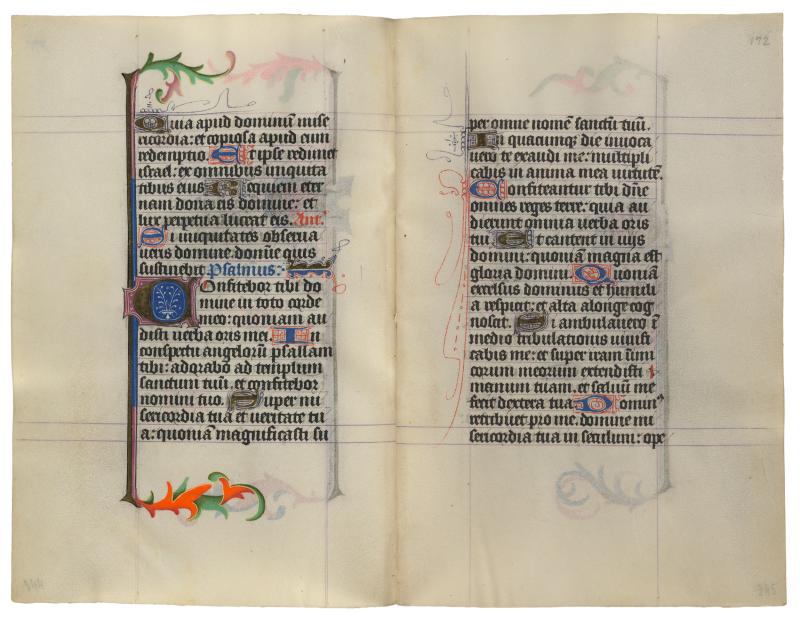 Quia apud dominū mise
ricordia: et copiosa apud eum
redemptio. Et ipse redimet
israel: ex omnibus iniquita
tibus eius Requiem eter
nam dona eis domine: et
lux perpetua luceat eis. Ant.
Si iniquitates observa
veris domine, domīe quis
sustinebit Psalmus:
Confitebor tibi do
mine in toto corde
meo: quoniam au
disti verba oris mei. In
conspectu angelorū psallam
tibi: adorabo ad templum
sanctum tuū, et confitebor
nomini tuo. Super mi
sericordia tua et veritate tu
a: quoniā magnificasti su
172
per omne nomē sanctū tuū.
In quacunq; die invoca
vero te exaudi me: multipli
cabis in anima mea virtutē.
Confiteantur tibi dn̄e
omnes reges terre: quia au
dierunt omnia verba oris
tui Et cantent in viis
domini: quoniam magna est
gloria domini. Quoniam
excelsus dominus et humili
a respicit: et alta a longe cog
noscit. Si ambulavero ī
medio tribulationis vivifi
cabis me: et super iram inimi
corum meorum extendisti
manum tuam, et salvū me
fecit dextera tua Dominus
retribuet pro me, domine mi
sericordia tua in seculum: ope
344
345